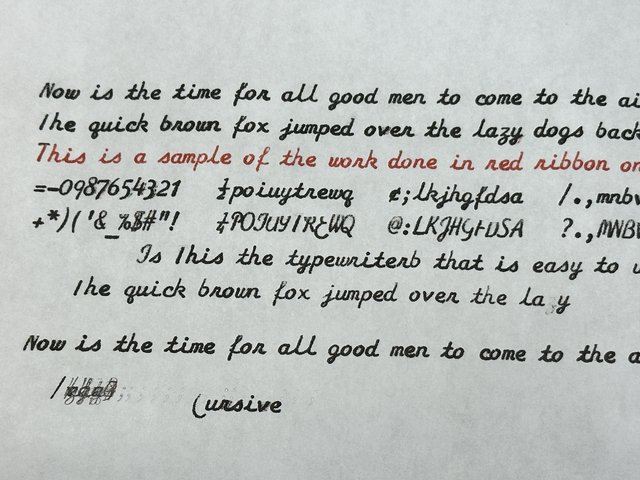 Now is the time for all good men to come to the ai
The quick brown fox jumped over the lazy dogs back
This is a sample of the work done in red ribbon on
=-0987654321 ½poiuytrewq ¢;lkjhgfdsa /.,mnbv
+*)('&_%$#"! ¼POIUYTREWQ @:LKJHGFDSA ?.,MNBV
Is This the typewriterb that is easy to
The quick brown fox jumped over the la y
Now is the time for all good men to come to the a
Cursive